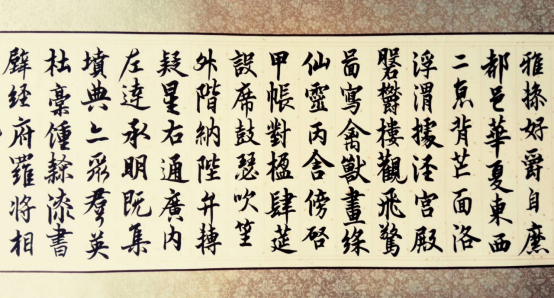 雅操好爵自縻
都邑華夏東西
二京背芒面洛
浮渭據涇宮殿
磐鬱樓觀飛驚
啚寫禽獸畫綵
仙靈丙舍傍啓
甲帳對楹肆筵
設席鼓瑟吹笙
升階納陛弁轉
疑星右通廣內
左達承明既集
墳典亦聚羣英
杜稾鍾隸漆書
壁經府羅將相